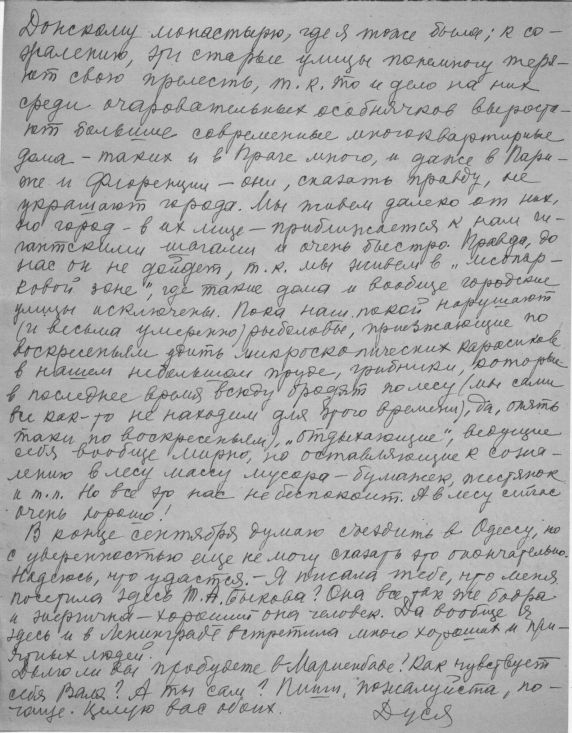 Донскому монастырю, где я тоже была; к со-
жалению, эти старые улицы понемногу теря-
ют свою прелесть, т.к. то и дело на них
среди очаровательных особнячков выроста-
ют большие современные многоквартирные
дома – таких и в Праге много, и даже в Пари-
же и Флоренции – они, сказать правду, не
украшают города. Мы живем далеко от них,
но город – в их лице – приближается к нам ги-
гантскими шагами и очень быстро. Правда, до
нас он не дойдет, т.к. мы живем в „лесопар-
ковой зоне", где такие дома и вообще городские
улицы исключены. Пока наш покой нарушают
(и весьма умеренно) рыболовы, приезжающие по
воскресеньям удить микроскопических карасиков
в нашем небольшом пруде, грибники, которые
в последнее время всюду бродят по лесу (мы сами
все как-то не находим для этого времени), да, опять
таки по воскресеньям, „отдыхающие", ведущие
себя вообще мирно, но оставляющие к сожа-
лению в лесу массу мусора – бумажек, жестянок
и т.п. Но все это нас не беспокоит. А в лесу сейчас
очень хорошо!
В конце сентября думаю съездить в Одессу, но
с уверенностью еще не могу сказать это окончательно.
Надеюсь, что удастся. – Я писала тебе, что меня
посетила здесь Т.А. Быкова? Она все так же бодра
и энергична – хороший она человек. Да вообще я
здесь и в Ленинграде встретила много хороших и при-
ятных людей.
Долго ли вы пробудете в Мариенбаде? Как чувствует
себя Валя? А ты сам? Пиши, пожалуйста, по-
чаще. Целую вас обоих.
Дуся